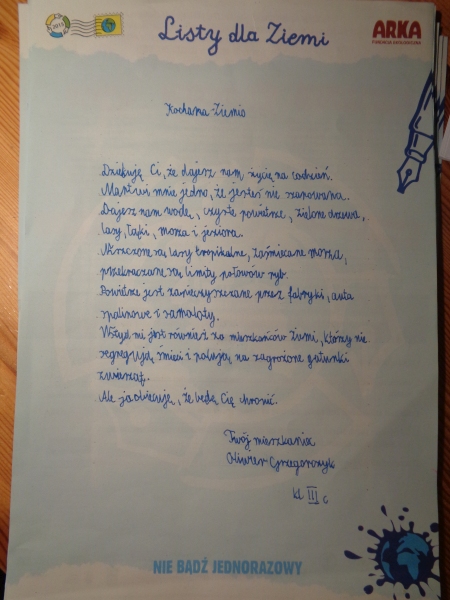 2013
Listy dla Ziemi
ARKA
FUNDACJA EKOLOGICZNA
Kochana Ziemio
Dziękuję Ci, że dajesz nam życie na codzień.
Martwi mnie jedno, że jesteś nie szanowana.
Dajesz nam wodę, czyste powietrze, zielone drzewa,
lasy, łąki, morza i jeziora.
Niszczone są lasy tropikalne, zaśmiecane morza,
przekraczane są limity połowów ryb.
Powietrze jest zanieczyszczane przez fabryki, auta
spalinowe i samoloty.
Wstyd mi jest również za mieszkańców Ziemi, którzy nie
segregują śmieci i polują na zagrożone gatunki
zwierząt.
Ale ja obiecuję, że będę Cię chronić.
Twój mieszkaniec
Oliwier Grzegorczyk
kl III c
NIE BĄDŹ JEDNORAZOWY